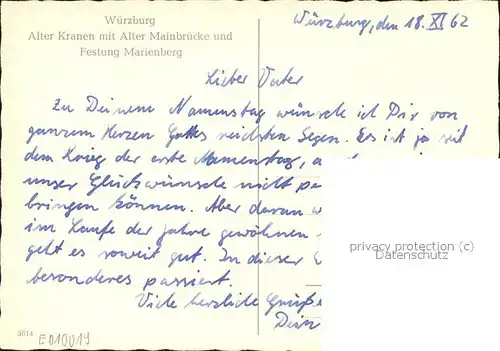 Würzburg
Alter Kranen mit Alter Mainbrücke und
Festung Marienberg
Würzburg, den 18. XI 62
Lieber Vater
Zu Deinem Namenstag wünsche ich Dir von
ganzem Herzen Gottes reichsten Segen. Es ist ja seit
dem Krieg der erste Namenstag,
unser Glückwünsche nicht
bringen können. Aber daran
im Laufe der Jahre gewöhnen
geht es soweit gut. In dieser
besonderes passiert.
Viele herzliche Grüße
Dein
privacy protection (c)
Datenschutz
5614
E010019